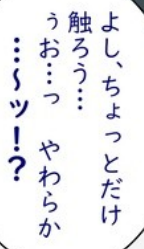 よし、ちょっとだけ
触ろう…
うお…っ　やわらか
…〜ッ！？